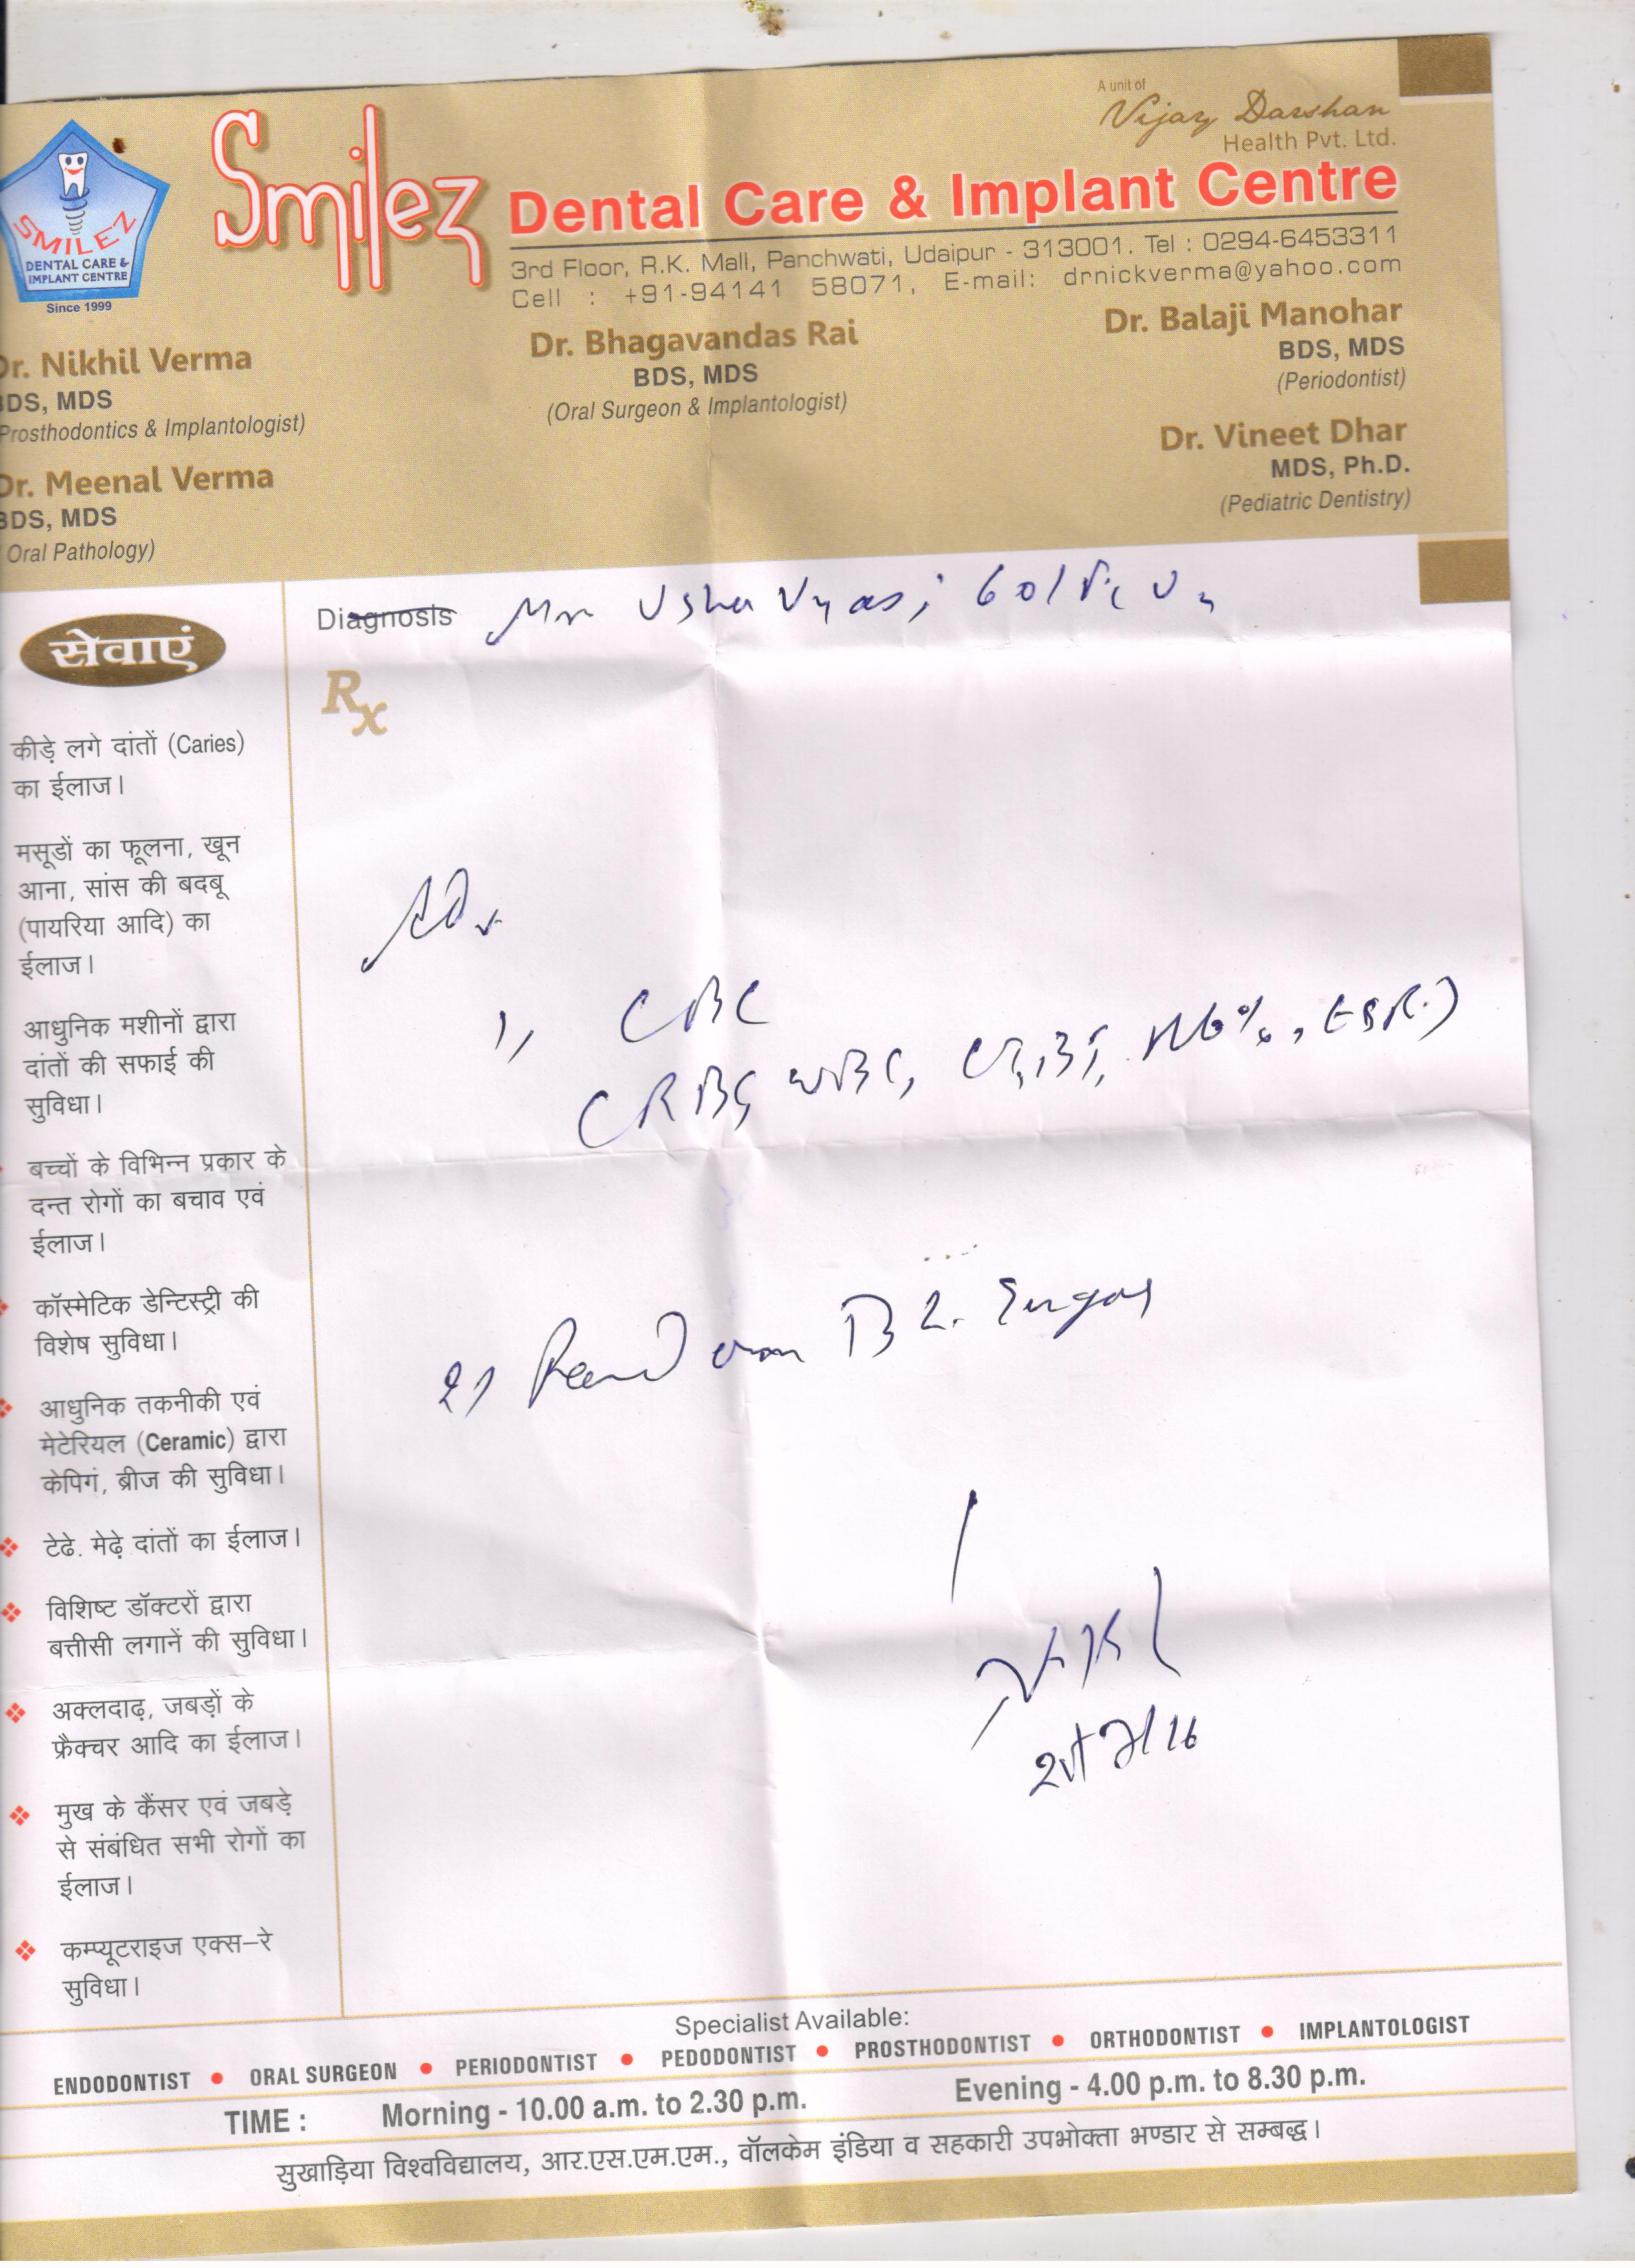 A unit of
Vijay Darshan
Health Pvt. Ltd.
Smilez Dental Care & Implant Centre
SMILEZ
DENTAL CARE &
IMPLANT CENTRE
Since 1999
3rd Floor, R.K. Mall, Panchwati, Udaipur - 313001. Tel : 0294-6453311
Cell : +91-94141 58071, E-mail: drnickverma@yahoo.com
Dr. Nikhil Verma
BDS, MDS
Prosthodontics & Implantologist)
Dr. Meenal Verma
BDS, MDS
Oral Pathology)
Dr. Bhagavandas Rai
BDS, MDS
(Oral Surgeon & Implantologist)
Dr. Balaji Manohar
BDS, MDS
(Periodontist)
Dr. Vineet Dhar
MDS, Ph.D.
(Pediatric Dentistry)
Diagnosis Usha Vyas; 60/
Rx
Adv
1, CBC
(RBC, WBC, CT, BT, Hb%, ESR.)
2, Random Bl. Sugar
सेवाएं
कीड़े लगे दांतों (Caries)
का ईलाज।
मसूडों का फूलना, खून
आना, सांस की बदबू
(पायरिया आदि) का
ईलाज।
आधुनिक मशीनों द्वारा
दांतों की सफाई की
सुविधा।
बच्चों के विभिन्न प्रकार के
दन्त रोगों का बचाव एवं
ईलाज।
कॉस्मेटिक डेन्टिस्ट्री की
विशेष सुविधा।
आधुनिक तकनीकी एवं
मेटेरियल (Ceramic) द्वारा
केपिगं, ब्रीज की सुविधा।
टेढे. मेढ़े दांतों का ईलाज।
विशिष्ट डॉक्टरों द्वारा
बत्तीसी लगानें की सुविधा।
अक्लदाढ़, जबड़ों के
फ्रैक्चर आदि का ईलाज।
मुख के कैंसर एवं जबड़े
से संबंधित सभी रोगों का
ईलाज।
कम्प्यूटराइज एक्स-रे
सुविधा।
Specialist Available:
ENDODONTIST • ORAL SURGEON • PERIODONTIST • PEDODONTIST • PROSTHODONTIST • ORTHODONTIST • IMPLANTOLOGIST
TIME : Morning - 10.00 a.m. to 2.30 p.m. Evening - 4.00 p.m. to 8.30 p.m.
सुखाड़िया विश्वविद्यालय, आर.एस.एम.एम., वॉलकेम इंडिया व सहकारी उपभोक्ता भण्डार से सम्बद्ध।